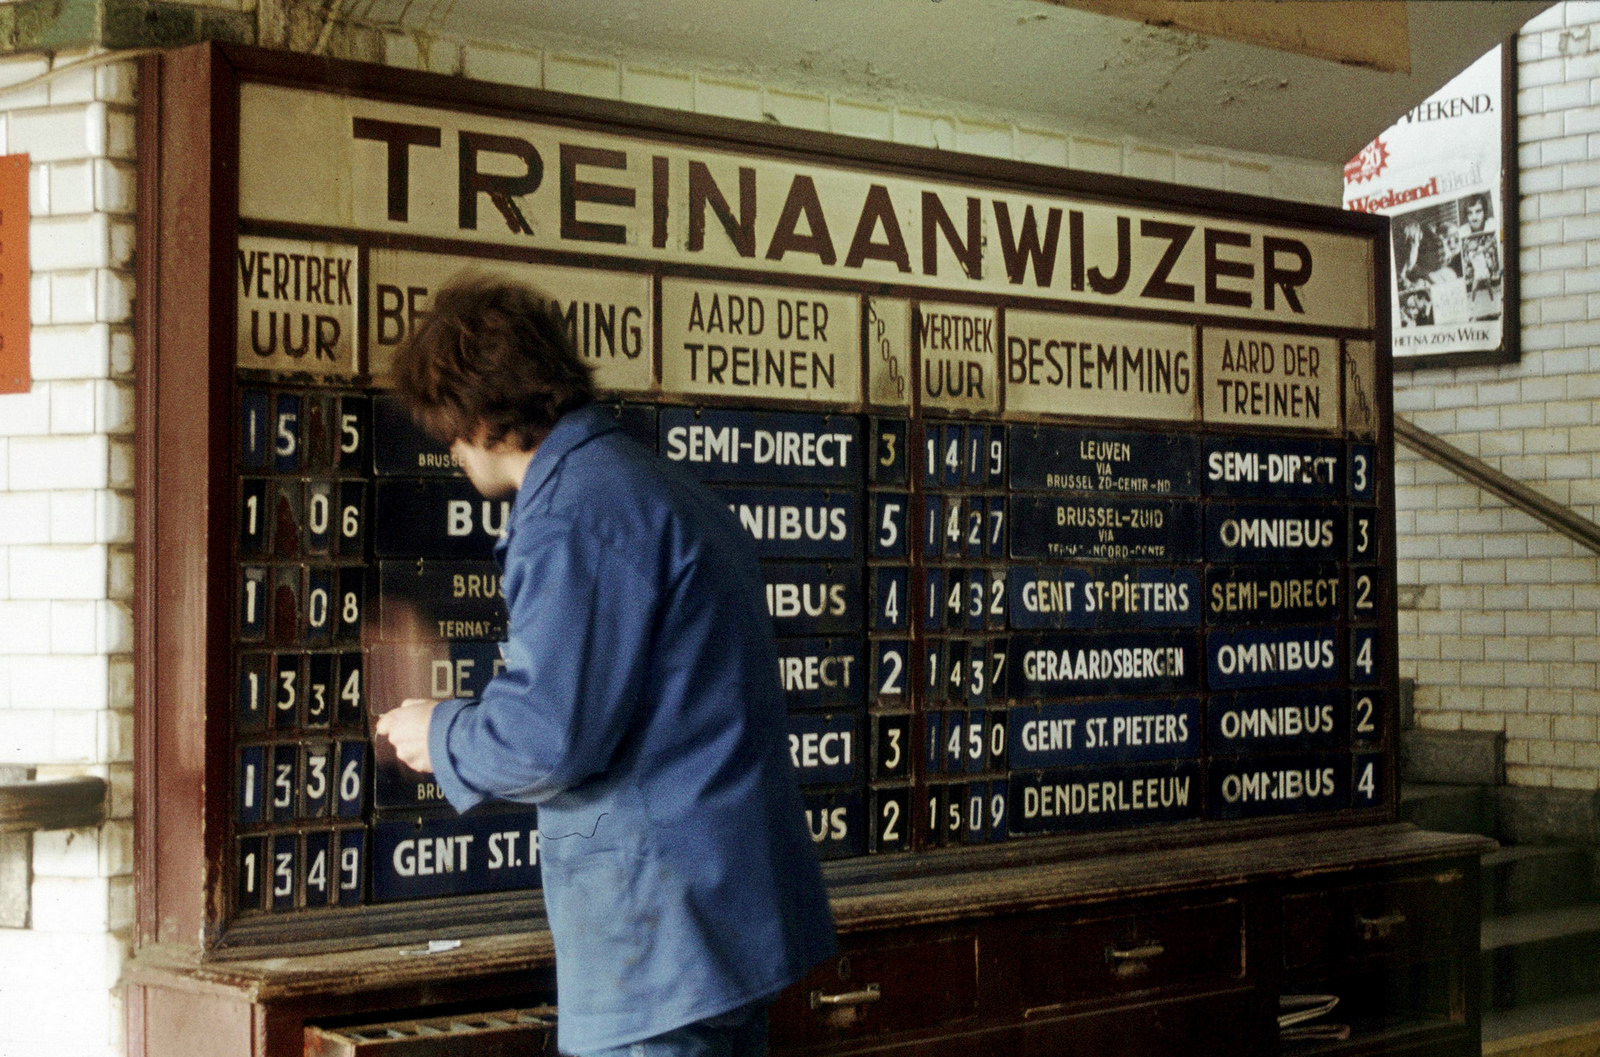 TREINAANWIJZER
VERTREK UUR
BE MING
AARD DER TREINEN
SPOOR
VERTREK UUR
BESTEMMING
AARD DER TREINEN
SPOOR
15 5 BRUSSE SEMI-DIRECT 3
1 06 BU NIBUS 5
1 08 BRUS IBUS 4
TERNAT-
1334 DE IRECT 2
1336 BRU RECT 3
1349 GENT ST. US 2
1419 LEUVEN SEMI-DIRECT 3
VIA
BRUSSEL ZD-CENTR-ND
1427 BRUSSEL-ZUID OMNIBUS 3
VIA
TERNAT-NOORD-CENTR
1432 GENT ST-PiETERS SEMI-DIRECT 2
1437 GERAARDSBERGEN OMNIBUS 4
1450 GENT ST. PIETERS OMNIBUS 2
1509 DENDERLEEUW OMNIBUS 4
WEEKEND.
20
Weekendblad
HET NA ZO'N WEEK